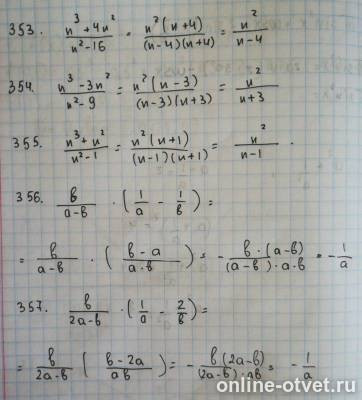 353. n³ + 4n² / n² - 16 = n²(n+4) / (n-4)(n+4) = n² / n-4
354. n³ - 3n² / n² - 9 = n²(n-3) / (n-3)(n+3) = n² / n+3
355. n³ + n² / n² - 1 = n²(n+1) / (n-1)(n+1) = n² / n-1 .
356. в / a-в · (1/a - 1/в) =
= в / a-в · (в-a / a·в) = - в·(a-в) / (a-в)·a·в = - 1/a
357. в / 2a-в · (1/a - 2/в) =
= в / 2a-в (в-2a / aв) = - в(2a-в) / (2a-в)·aв = - 1/a
online-otvet.ru